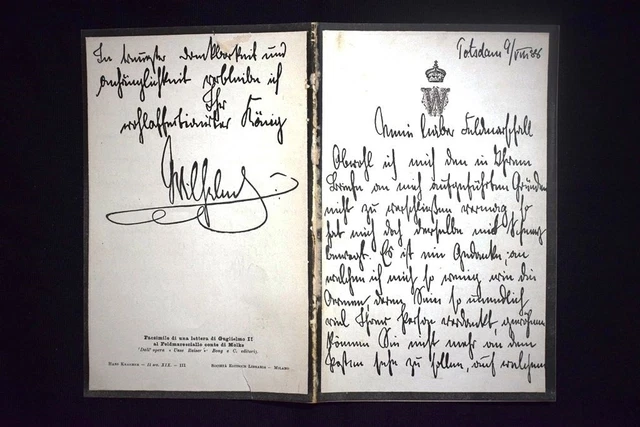 In treuester Dankbarkeit und
Anhänglichkeit verbleibe ich
Ihr
wohlaffectionirter König
Wilhelm
Facsimile di una lettera di Guglielmo II
al Feldmaresciallo conte di Molke
Dall' opera « Unser Kaiser »: Bong e C. editori).
HANS KRAEMER — Il sec. XIX. — III SOCIETÀ EDITRICE LIBRARIA — MILANO
Potsdam 9/VIII 88
W
Mein lieber Feldmarschall
Obwohl ich mich den in Ihrem
Briefe an mich aufgeführten Gründen
nicht zu verschließen vermag so
hat mich doch derselbe mit Schmerz
bewegt. Es ist ein Gedanke, an
welchen ich mich so wenig wie die
Armee, deren Sein so unendlich
viel Ihrer Person verdankt gewöhnen
können Sie nicht mehr an dem
Posten sehn zu sollen, auf welchem